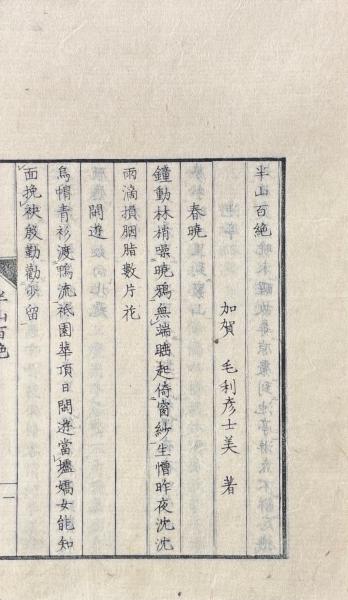 半山百絶
加賀 毛利彦士美 著
春曉
鐘動林梢噪曉鴉無端睡起倚窗紗生憎昨夜沈沈
雨滴損胭脂數片花
閒遊
烏帽青衫渡鴨流祇園華頂日閒遊當壚嬌女能知
面挽袂殷勤勸留
半山百絶
一